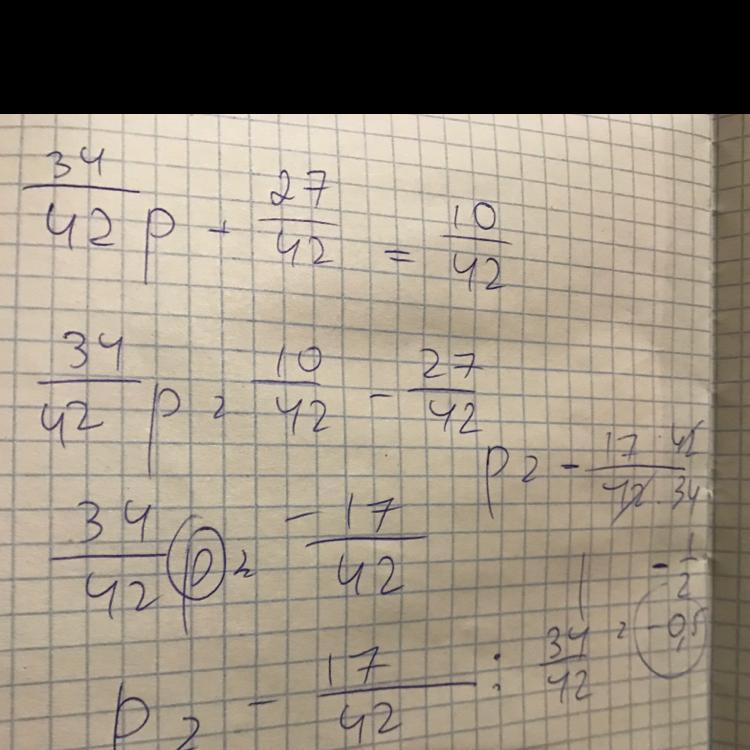 34/42 p + 27/42 = 10/42
34/42 p = 10/42 - 27/42
p = - 17 · 42 / 42 · 34
34/42 p = - 17/42
- 1/2
p = - 17/42 : 34/42 = -0,5